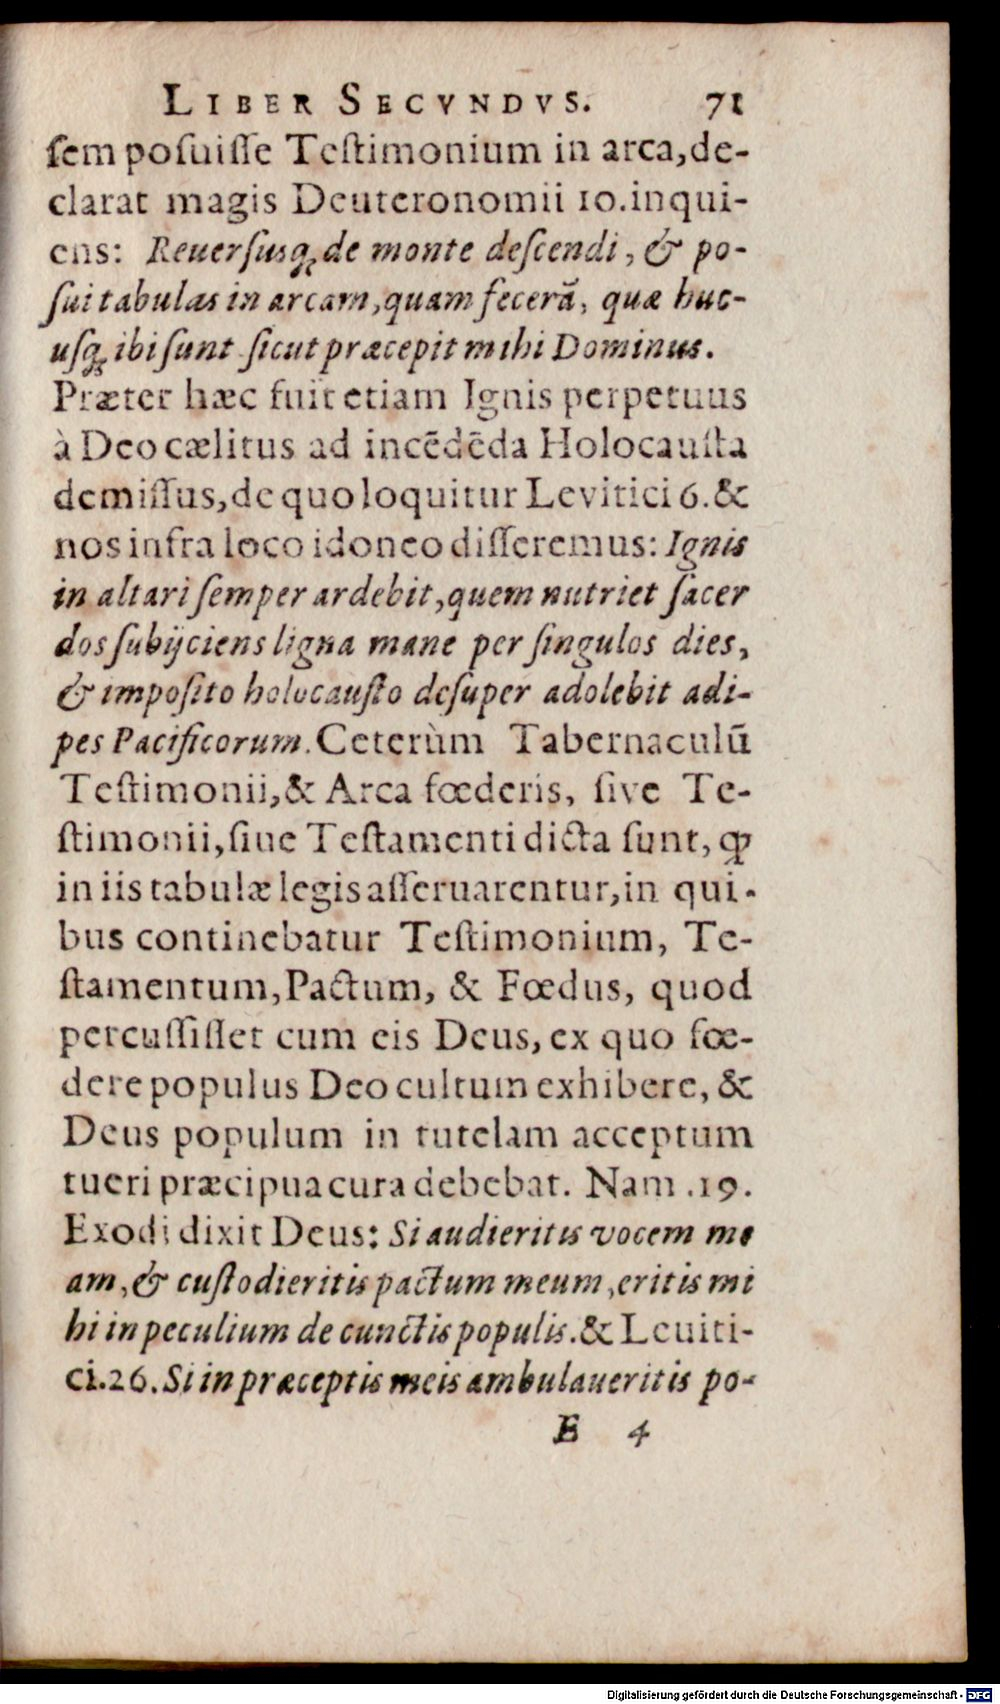 LIBER SECVNDVS. 71
ſem poſuiſſe Teſtimonium in arca, de-
clarat magis Deuteronomii 10. inqui-
ens: Reuerſusq́ꝫ de monte deſcendi, & po-
ſui tabulas in arcam, quam fecerã, quæ huc-
uſqꝫ ibi ſunt ſicut præcepit mihi Dominus.
Præter hæc fuit etiam Ignis perpetuus
à Deo cælitus ad incẽdẽda Holocauſta
demiſſus, de quo loquitur Levitici 6. &
nos infra loco idoneo diſſeremus: Ignis
in altari ſemper ardebit, quem nutriet ſacer
dos ſubijciens ligna mane per ſingulos dies,
& impoſito holocauſto deſuper adolebit adi-
pes Pacificorum. Ceterùm Tabernaculũ
Teſtimonii, & Arca fœderis, ſive Te-
ſtimonii, ſiue Teſtamenti dicta ſunt, ꝙ
in iis tabulæ legis aſſeruarentur, in qui-
bus continebatur Teſtimonium, Te-
ſtamentum, Pactum, & Fœdus, quod
percuſſiſſet cum eis Deus, ex quo fœ-
dere populus Deo cultum exhibere, &
Deus populum in tutelam acceptum
tueri præcipua cura debebat. Nam .19.
Exodi dixit Deus: Si audieritis vocem me
am, & cuſtodieritis pactum meum, eritis mi
hi in peculium de cunctis populis. & Leuiti-
ci. 26. Si in præceptis meis ambulaueritis po-
E 4
Digitalisierung gefördert durch die Deutsche Forschungsgemeinschaft - DFG